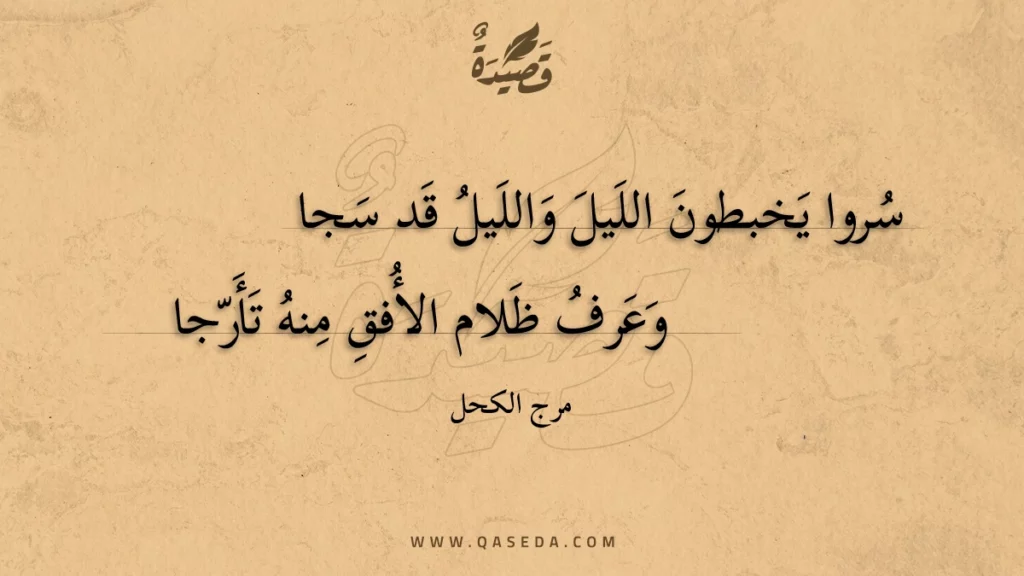 قَصِيْدَةٌ
سُروا يَخبطونَ اللَيلَ وَاللَيلُ قَد سَجا
وَعَرفُ ظَلام الأُفقِ مِنهُ تَأَرّجا
مرج الكحل
WWW.QASEDA.COM